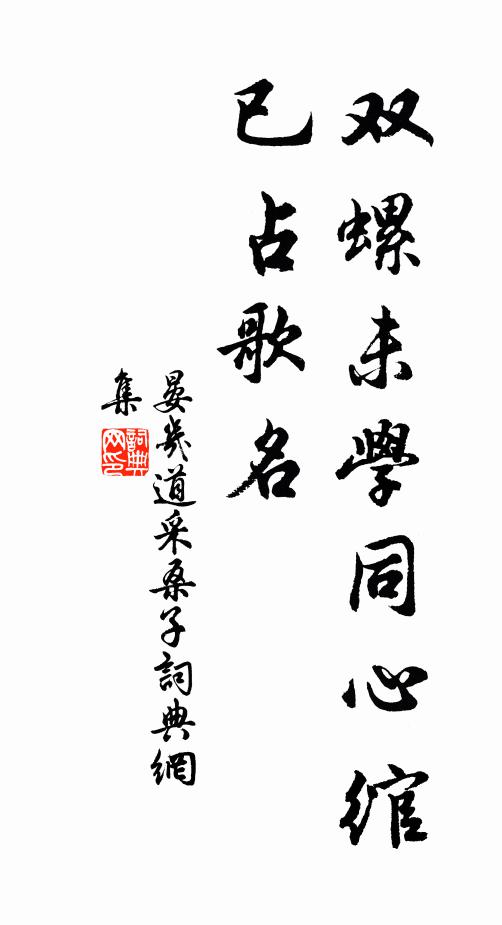 双螺未學同心綰
已占歌名
晏幾道采桑子詞典網
集
詞典
网印